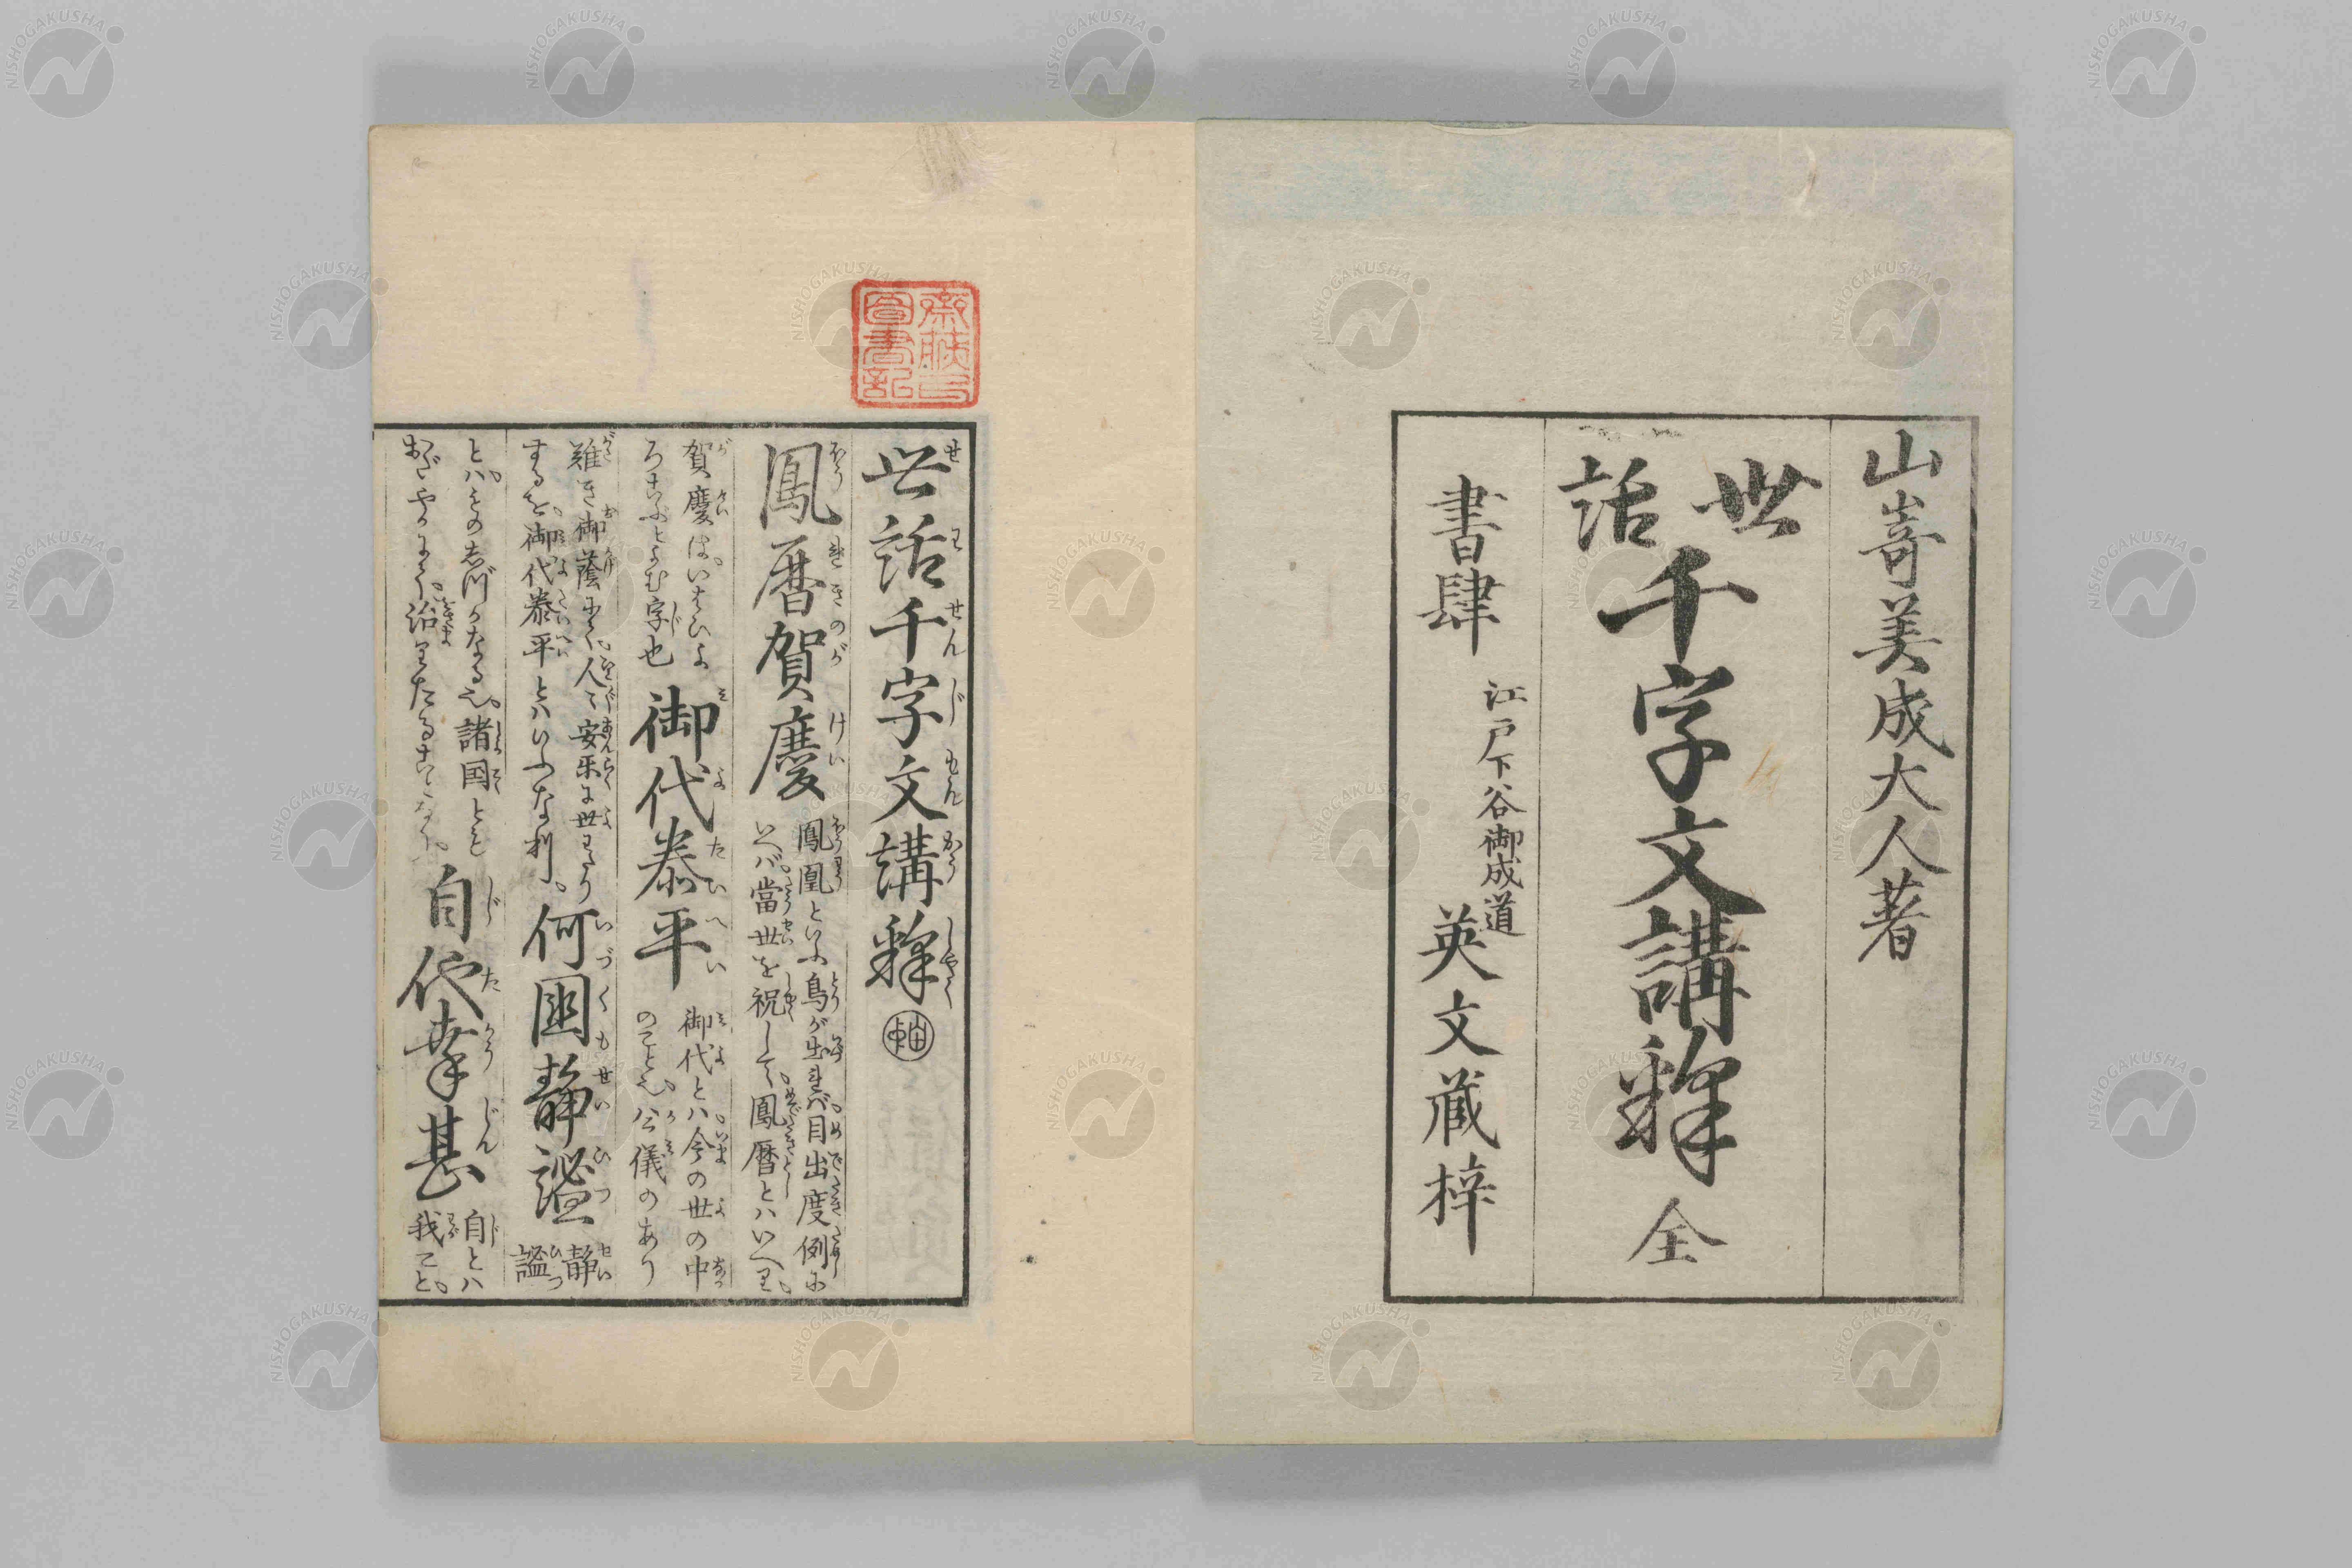 山嵜美成大人著
世話千字文講釋 全
書肆 江戸下谷御成道 英文蔵梓
世話千字文講釋
鳳暦賀慶 鳳凰といふ鳥が出れバ目出度例に
いへバ當世を祝して鳳暦とハいへり
賀慶はいはひよ
ろこぶとよむ字也 御代泰平 御代とハ今の世の中
のこと也公儀のあり
難き御蔭にて人々安楽に世わたり
するを御代泰平とハいふなり 何国静謐 静謐
とハものしづかなる也諸国とも
おだやかにて治りたることなり 自他幸甚 自とハ
我こと
NISHOGAKUSHA